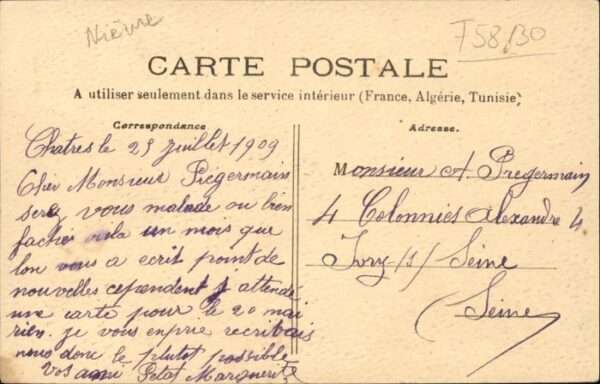 Nièvre
F58/30
CARTE POSTALE
A utiliser seulement dans le service intérieur (France, Algérie, Tunisie)
Correspondance
Chatres le 25 juillet 1909
Cher Monsieur Prégermain
serez vous malade ou bien
faché voila un mois que
lon vous a ecrit point de
nouvelles cependent j attendé
une carte pour le 20 mai
rien. je vous enprie recribais
nous donc le plutot possible
Vos ami Petat Marguerite
Adresse.
Monsieur A. Pregermain
4 Colonniés Alexandre 4
Ivry /s/ Seine
(Seine)